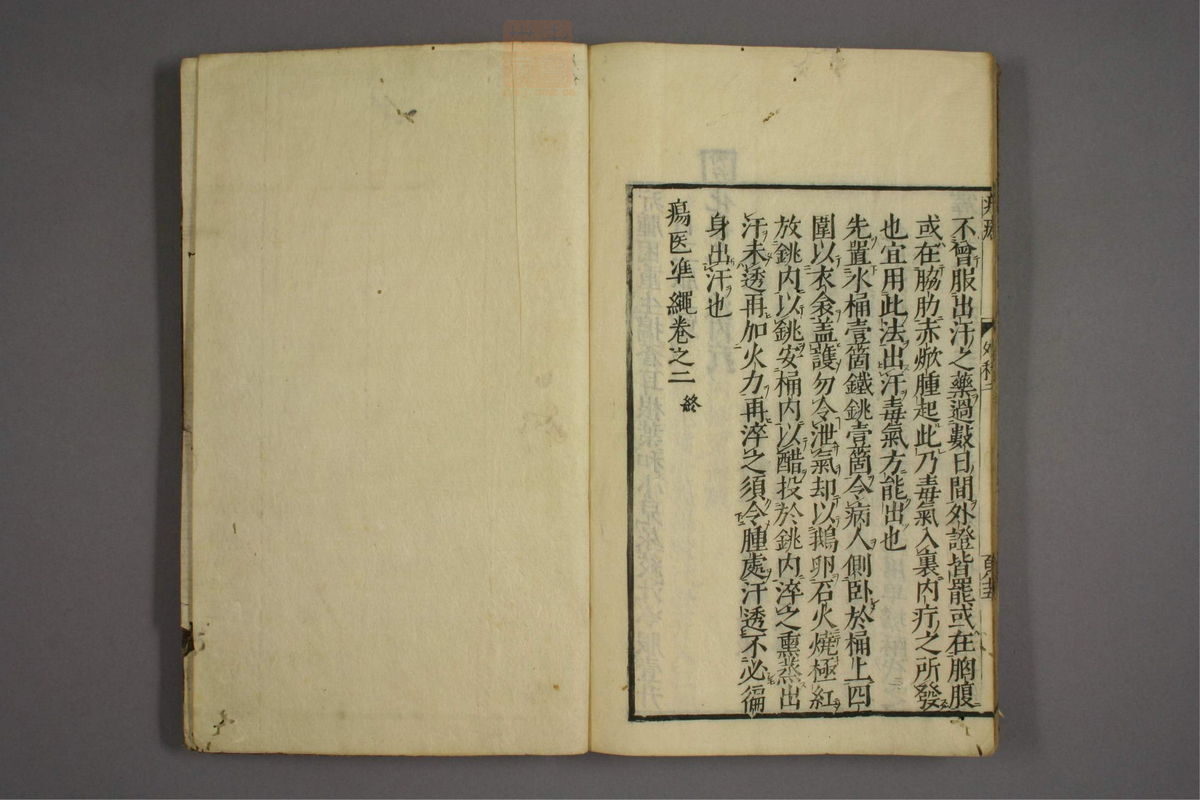 不曾服出汗之藥過數日間外證皆罷或在胸腹
或在脇肋赤焮腫起此乃毒氣入裏内疔之所發
也宜用此法出汗毒氣方能出也
先置水桶壹箇鐵銚壹箇令病人側卧於桶上四
圍以衣衾盖護勿令泄氣却以鵝卵石火燒極紅
放銚内以銚安桶内以醋投於銚内淬之熏蒸出
汗未透再加火力再淬之須令腫處汗透不必徧
身出汗也
瘍医準繩巻之二 終